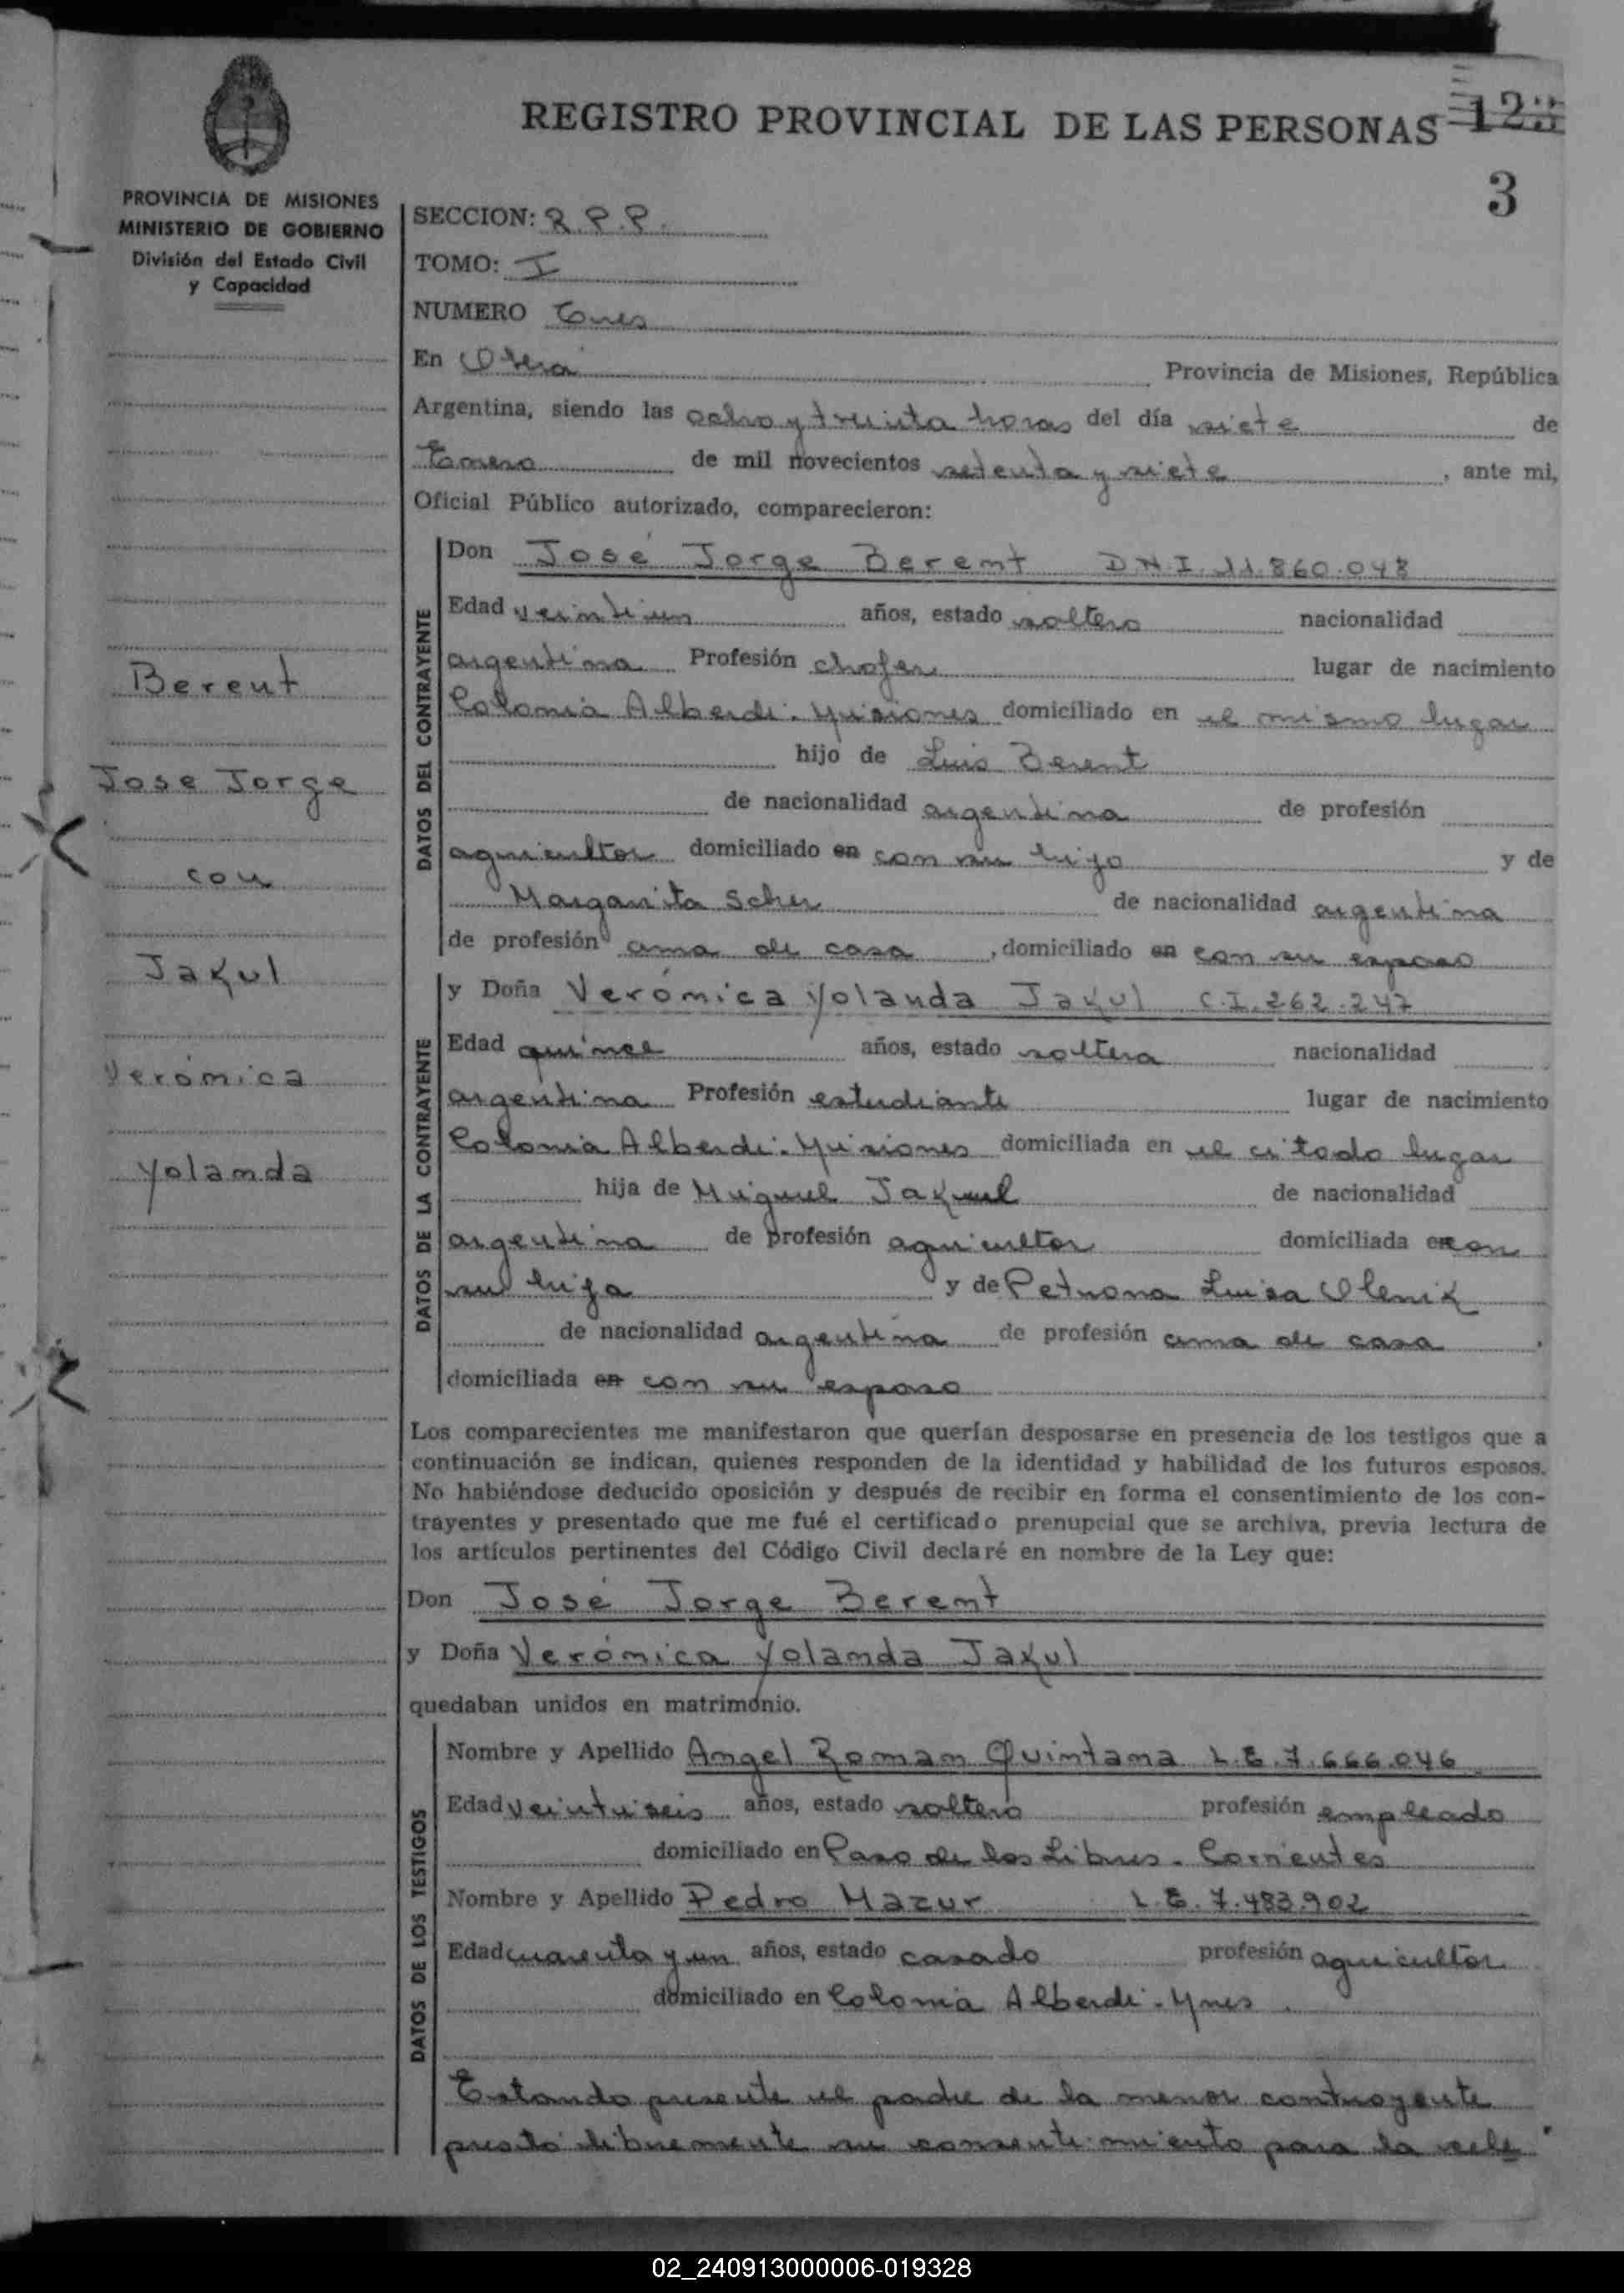 REGISTRO PROVINCIAL DE LAS PERSONAS
3
PROVINCIA DE MISIONES
MINISTERIO DE GOBIERNO
División del Estado Civil
y Capacidad
SECCION: R.P.P.
TOMO: I
NUMERO Tres
En Oberá Provincia de Misiones, República
Argentina, siendo las ocho y treinta horas del día siete de
Enero de mil novecientos setenta y siete, ante mi,
Oficial Público autorizado, comparecieron:
DATOS DEL CONTRAYENTE
Don José Jorge Berent D.N.I. 11.860.048
Edad veintiun años, estado soltero nacionalidad
argentina Profesión chofer lugar de nacimiento
Colonia Alberdi. Misiones domiciliado en el mismo lugar
hijo de Luis Berent
de nacionalidad argentina de profesión
agricultor domiciliado en con su hijo y de
Margarita Scher de nacionalidad argentina
de profesión ama de casa, domiciliado en con su esposo
Berent
Jose Jorge
con
Jakul
Verónica
Yolanda
DATOS DE LA CONTRAYENTE
y Doña Verónica Yolanda Jakul C.I. 262.247
Edad quince años, estado soltera nacionalidad
argentina Profesión estudiante lugar de nacimiento
Colonia Alberdi. Misiones domiciliada en el citado lugar
hija de Miguel Jakul de nacionalidad
argentina de profesión agricultor domiciliada en con
su hija y de Petrona Luisa Olenik
de nacionalidad argentina de profesión ama de casa,
domiciliada en con su esposo
Los comparecientes me manifestaron que querían desposarse en presencia de los testigos que a
continuación se indican, quienes responden de la identidad y habilidad de los futuros esposos.
No habiéndose deducido oposición y después de recibir en forma el consentimiento de los con-
trayentes y presentado que me fué el certificado prenupcial que se archiva, previa lectura de
los artículos pertinentes del Código Civil declaré en nombre de la Ley que:
Don José Jorge Berent
y Doña Verónica Yolanda Jakul
quedaban unidos en matrimonio.
DATOS DE LOS TESTIGOS
Nombre y Apellido Angel Roman Quintana L.E. 7.666.046
Edad veintiseis años, estado soltero profesión empleado
domiciliado en Paso de los Libres. Corrientes
Nombre y Apellido Pedro Mazur L.E. 7.483.902
Edad cuarenta y un años, estado casado profesión agricultor
domiciliado en Colonia Alberdi. Mnes.
Estando presente el padre de la menor contrayente
prestó libremente su consentimiento para la cele
02_240913000006-019328